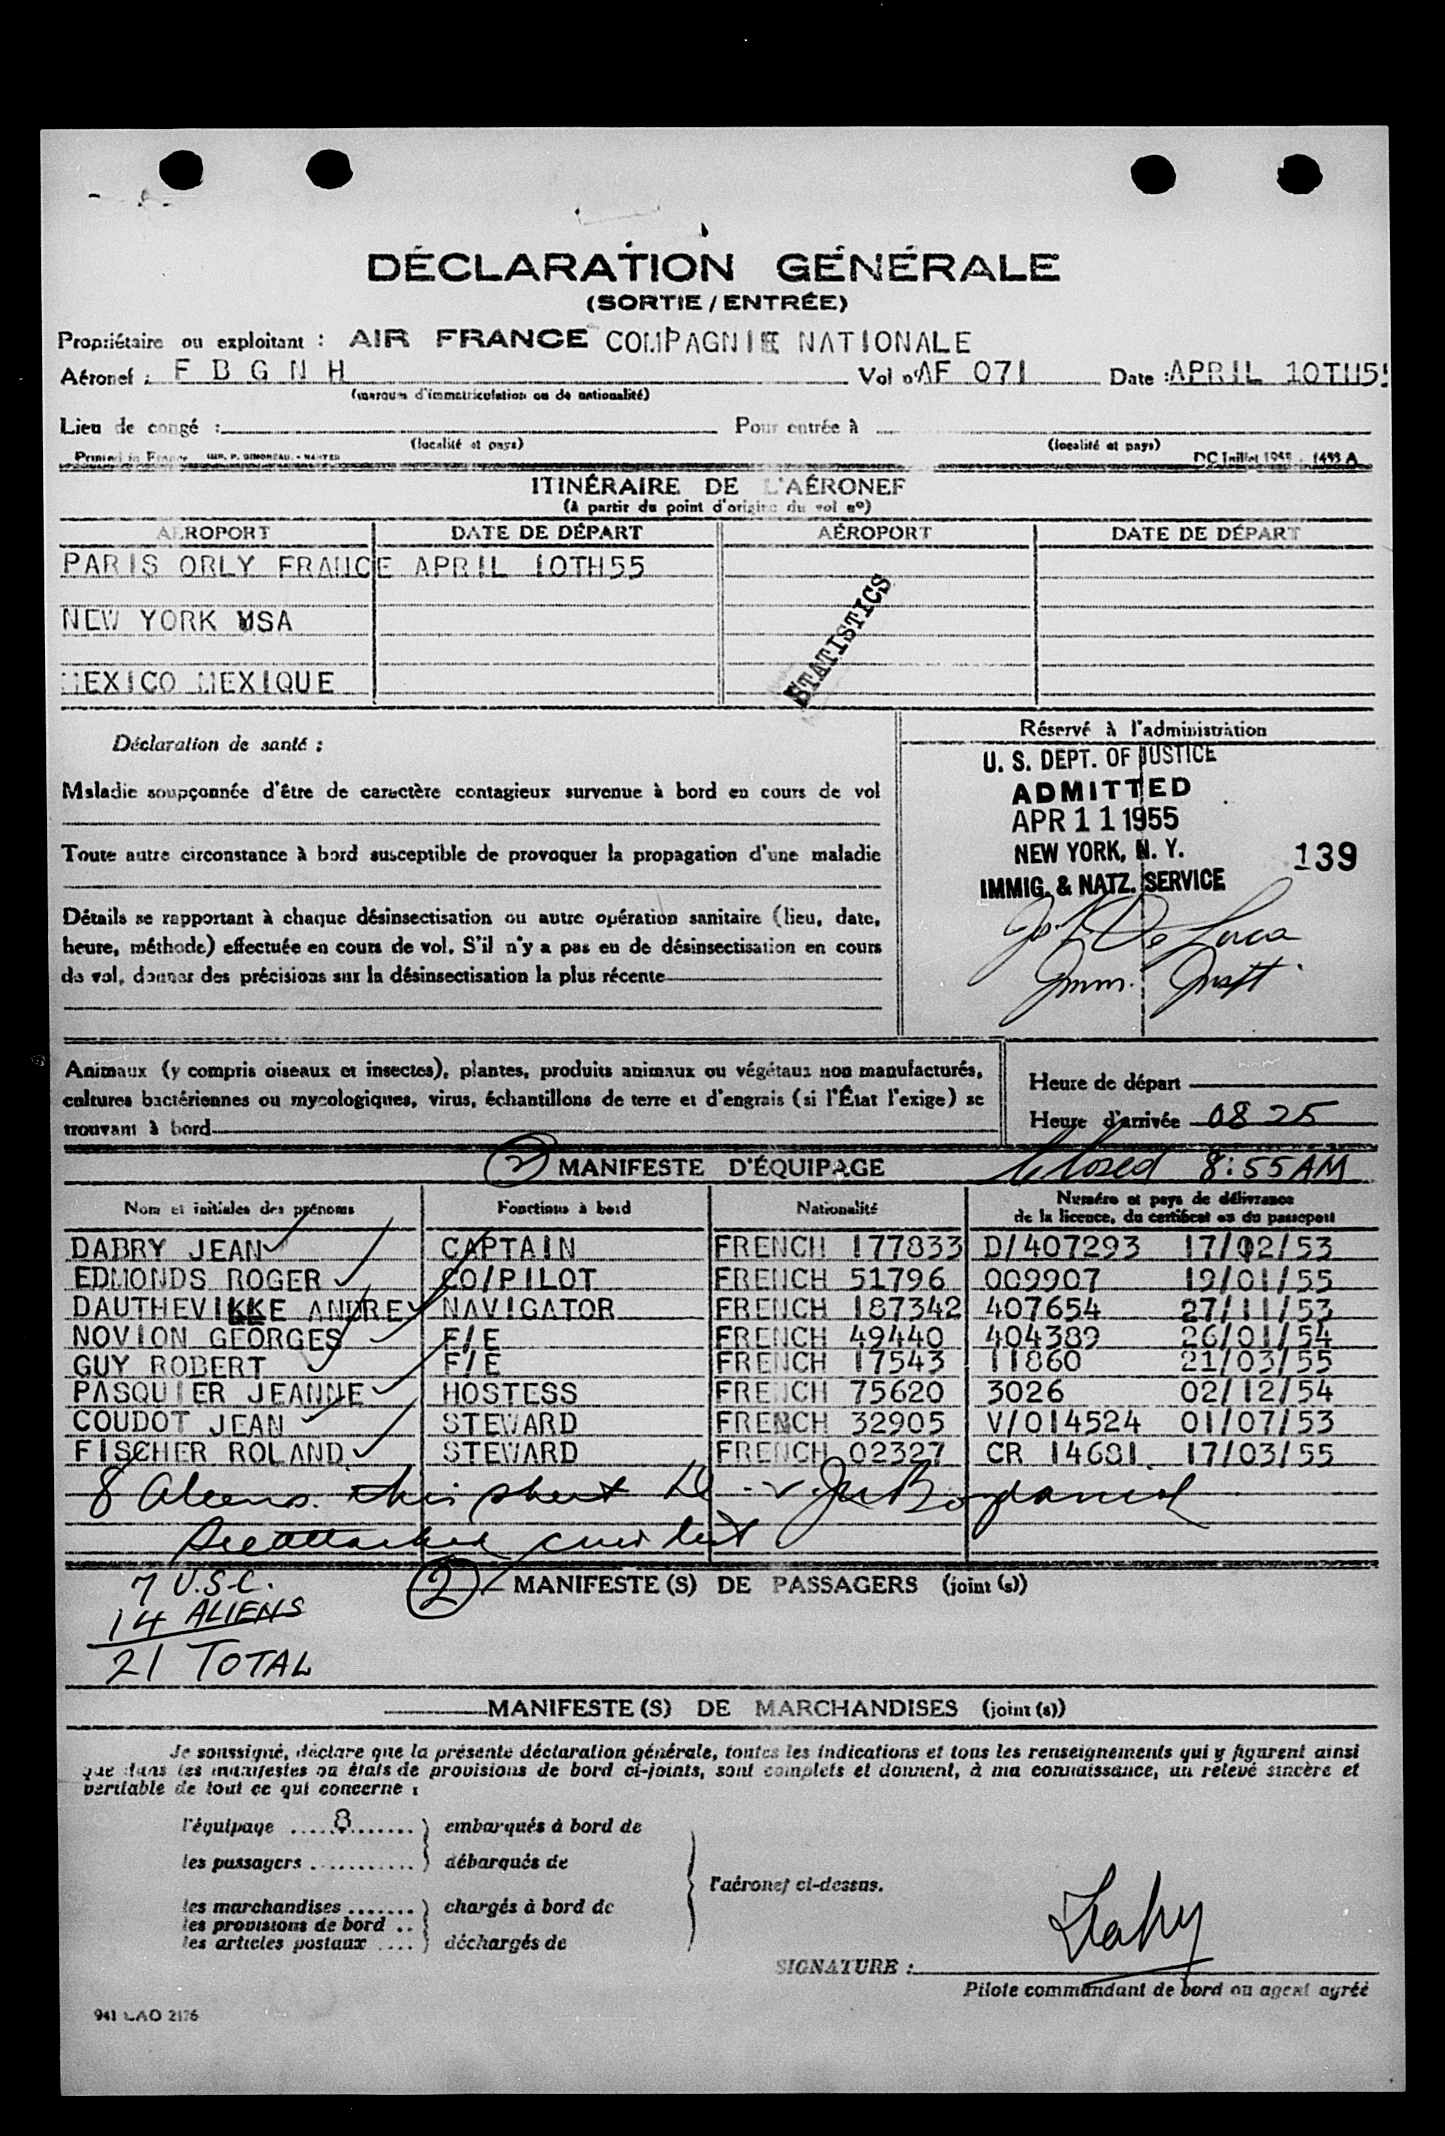 DÉCLARATION GÉNÉRALE
(SORTIE / ENTRÉE)
Propriétaire ou exploitant : AIR FRANCE COMPAGNIE NATIONALE
Aéronef : F B G N H Vol nº AF 071 Date : APRIL 10TH55
(marques d'immatriculation ou de nationalité)
Lieu de congé : Pour entrée à
(localité et pays) (localité et pays)
Printed in France IMP. P. GIMOREAU. - NANTES DC Juillet 1433 A
ITINÉRAIRE DE L'AÉRONEF
(à partir du point d'origine du vol nº)
AÉROPORT DATE DE DÉPART AÉROPORT DATE DE DÉPART
PARIS ORLY FRANCE APRIL 10TH55
NEW YORK USA
MEXICO MEXIQUE
STATISTICS
Réservé à l'administration
Déclaration de santé :
U. S. DEPT. OF JUSTICE
ADMITTED
APR 11 1955
NEW YORK, N. Y.
139
IMMIG. & NATZ. SERVICE
Jos De Luca
Imm. Insp
Maladie soupçonnée d'être de caractère contagieux survenue à bord en cours de vol
Toute autre circonstance à bord susceptible de provoquer la propagation d'une maladie
Détails se rapportant à chaque désinsectisation ou autre opération sanitaire (lieu, date,
heure, méthode) effectuée en cours de vol. S'il n'y a pas eu de désinsectisation en cours
de vol, donner des précisions sur la désinsectisation la plus récente
Animaux (y compris oiseaux et insectes), plantes, produits animaux ou végétaux non manufacturés,
cultures bactériennes ou mycologiques, virus, échantillons de terre et d'engrais (si l'État l'exige) se
trouvant à bord
Heure de départ
Heure d'arrivée 08 25
(2) MANIFESTE D'ÉQUIPAGE Closed 8:55 AM
Nom et initiales des prénoms Fonctions à bord Nationalité Numéro et pays de délivrance
de la licence, du certificat ou du passeport
DABRY JEAN CAPTAIN FRENCH 177833 D/407293 17/02/53
EDMONDS ROGER CO/PILOT FRENCH 51796 009907 19/01/55
DAUTHEVIKKE ANDRE NAVIGATOR FRENCH 187342 407654 27/11/53
NOVION GEORGES F/E FRENCH 49440 404389 26/01/54
GUY ROBERT F/E FRENCH 17543 11860 21/03/55
PASQUIER JEANNE HOSTESS FRENCH 75620 3026 02/12/54
COUDOT JEAN STEWARD FRENCH 32905 V/014524 01/07/53
FISCHER ROLAND STEWARD FRENCH 02327 CR 14681 17/03/55
8 Aliens this sheet
See attached crew list
7 U.S.C.
14 ALIENS
21 TOTAL
(2) MANIFESTE (S) DE PASSAGERS (joint (s))
MANIFESTE (S) DE MARCHANDISES (joint (s))
Je soussigné, déclare que la présente déclaration générale, toutes les indications et tous les renseignements qui y figurent ainsi
que dans les manifestes ou états de provisions de bord ci-joints, sont complets et donnent, à ma connaissance, un relevé sincère et
véritable de tout ce qui concerne :
l'équipage ..... 8 ....... } embarqués à bord de
les passagers ............ } débarqués de
l'aéronef ci-dessus.
les marchandises ....... } chargés à bord de
les provisions de bord ..
les articles postaux .... } déchargés de
SIGNATURE :
Pilote commandant de bord ou agent agréé
941 LAO 2176